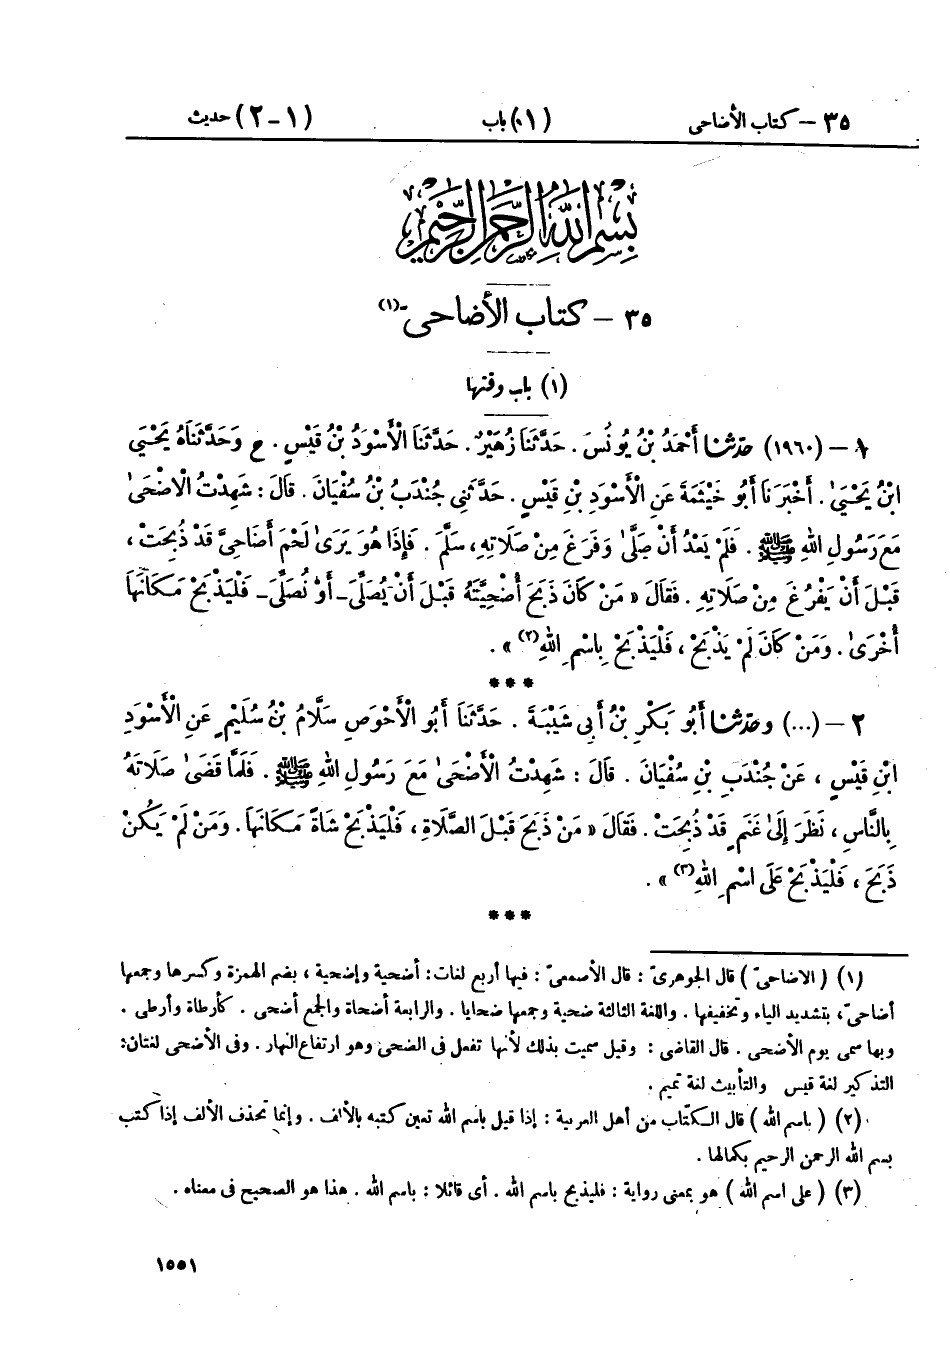 ٣٥ – كتاب الأضاحى (١) باب (١–٢) حديث
بِسْمِ اللهِ الرَّحْمٰنِ الرَّحِيْمِ
٣٥ – كتاب الأضاحى (١)
(١) باب وقتها
١ – (١٩٦٠) حدّثنا أَحْمَدُ بْنُ يُونُسَ . حَدَّثَنَا زُهَيْرٌ . حَدَّثَنَا الْأَسْوَدُ بْنُ قَيْسٍ . ح وَحَدَّثَنَاهُ يَحْيَي
ابْنُ يَحْيَىٰ . أَخْبَرَنَا أَبُو خَيْثَمَةَ عَنِ الْأَسْوَدِ بْنِ قَيْسٍ . حَدَّثَنِى جُنْدَبُ بْنُ سُفْيَانَ . قَالَ : شَهِدْتُ الْأَضْحَىٰ
مَعَ رَسُولِ اللهِ ﷺ . فَلَمْ يَعْدُ أَنْ صَلَّىٰ وَفَرَغَ مِنْ صَلَاتِهِ، سَلَّمَ . فَإِذَا هُوَ يَرَىٰ لَحْمَ أَضَاحِىَّ قَدْ ذُبِحَتْ ،
قَبْلَ أَنْ يَفْرُغَ مِنْ صَلَاتِهِ . فَقَالَ « مَنْ كَانَ ذَبَحَ أُضْحِيَّتَهُ قَبْلَ أَنْ يُصَلِّىَ – أَوْ نُصَلِّىَ – فَلْيَذْبَحْ مَكَانَهَا
أُخْرَىٰ . وَمَنْ كَانَ لَمْ يَذْبَحْ ، فَلْيَذْبَحْ بِاسْمِ اللهِ(٢) » .
***
٢ – (...) وحدّثنا أَبُو بَكْرِ بْنُ أَبِي شَيْبَةَ . حَدَّثَنَا أَبُو الْأَحْوَصِ سَلَّامُ بْنُ سُلَيْمٍ عَنِ الْأَسْوَدِ
ابْنِ قَيْسٍ ، عَنْ جُنْدَبِ بْنِ سُفْيَانَ . قَالَ : شَهِدْتُ الْأَضْحَىٰ مَعَ رَسُولِ اللهِ ﷺ . فَلَمَّا قَضَىٰ صَلَاتَهُ
بِالنَّاسِ ، نَظَرَ إِلَىٰ غَنَمٍ قَدْ ذُبِحَتْ . فَقَالَ « مَنْ ذَبَحَ قَبْلَ الصَّلَاةِ ، فَلْيَذْبَحْ شَاةً مَكَانَهَا . وَمَنْ لَمْ يَكُنْ
ذَبَحَ ، فَلْيَذْبَحْ عَلَى اسْمِ اللهِ(٣) » .
***
(١) ( الأضاحىّ ) قال الجوهرىّ : قال الأصمعىّ : فيها أربع لغات: أضحية وإضحية ، بضم الهمزة وكسرها وجمعها
أضاحىّ، بتشديد الياء وتخفيفها . واللغة الثالثة ضحية وجمعها ضحايا . والرابعة أضحاة والجمع أضحى . كأرطاة وأرطى .
وبها سمى يوم الأضحى . قال القاضى : وقيل سميت بذلك لأنها تفعل فى الضحى وهو ارتفاع النهار . وفى الأضحى لغتان:
التذكير لغة قيس والتأنيث لغة تميم .
(٢) ( باسم الله ) قال الكتّاب من أهل العربية : إذا قيل باسم الله تعين كتبه بالألف . وإنما تحذف الألف إذا كتب
بسم الله الرحمن الرحيم بكمالها .
(٣) ( على اسم الله ) هو بمعنى رواية : فليذبح باسم الله . أى قائلا : باسم الله . هذا هو الصحيح فى معناه .
١٥٥١